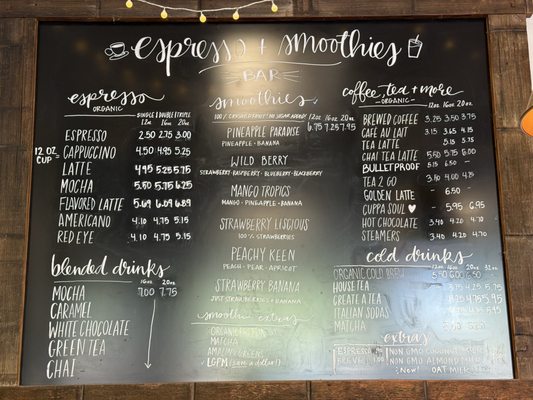 espresso + smoothies
BAR
espresso
ORGANIC
SINGLE DOUBLE TRIPLE
12oz. 16oz 20oz
12 OZ. CUP
ESPRESSO 2.50 2.75 3.00
CAPPUCCINO 4.50 4.85 5.25
LATTE 4.95 5.25 5.75
MOCHA 5.50 5.75 6.25
FLAVORED LATTE 5.69 6.09 6.89
AMERICANO 4.10 4.75 5.15
RED EYE 4.10 4.75 5.15
blended drinks
16oz 20oz
MOCHA 7.00 7.75
CARAMEL
WHITE CHOCOLATE
GREEN TEA
CHAI
smoothies
100% CRUSHED FRUIT NO SUGAR ADDED! 12oz 16oz 20oz
PINEAPPLE PARADISE 6.75 7.25 7.95
PINEAPPLE - BANANA
WILD BERRY
STRAWBERRY - RASPBERRY - BLUEBERRY - BLACKBERRY
MANGO TROPICS
MANGO - PINEAPPLE - BANANA
STRAWBERRY LISCIOUS
100% STRAWBERRIES
PEACHY KEEN
PEACH - PEAR - APRICOT
STRAWBERRY BANANA
JUST STRAWBERRIES + BANANA
smoothie extras
MATCHA
GREENS
LGPM
coffee, tea + more
ORGANIC
12oz. 16oz. 20oz.
BREWED COFFEE 3.25 3.50 3.75
CAFÉ AU LAIT 3.15 3.65 4.15
TEA LATTE 5.15 5.75
CHAI TEA LATTE 5.50 5.75 6.00
BULLETPROOF 5.15 6.50 -
TEA 2 GO 3.40 4.00 4.75
GOLDEN LATTE - 6.50 -
CUPPA SOUL ♥ - 5.95 6.95
HOT CHOCOLATE 3.40 4.20 4.70
STEAMERS 3.40 4.20 4.70
cold drinks
12oz 16oz 20oz 32oz
ORGANIC COLD BREW 5.50 6.00 6.50
HOUSE TEA 3.75 4.25 5.75
CREATE A TEA 4.25 4.75 5.95
ITALIAN SODAS
MATCHA
extras
ESPRESSO
BREVE
NON GMO COCONUT
NON GMO ALMOND
NOW! OAT MILK